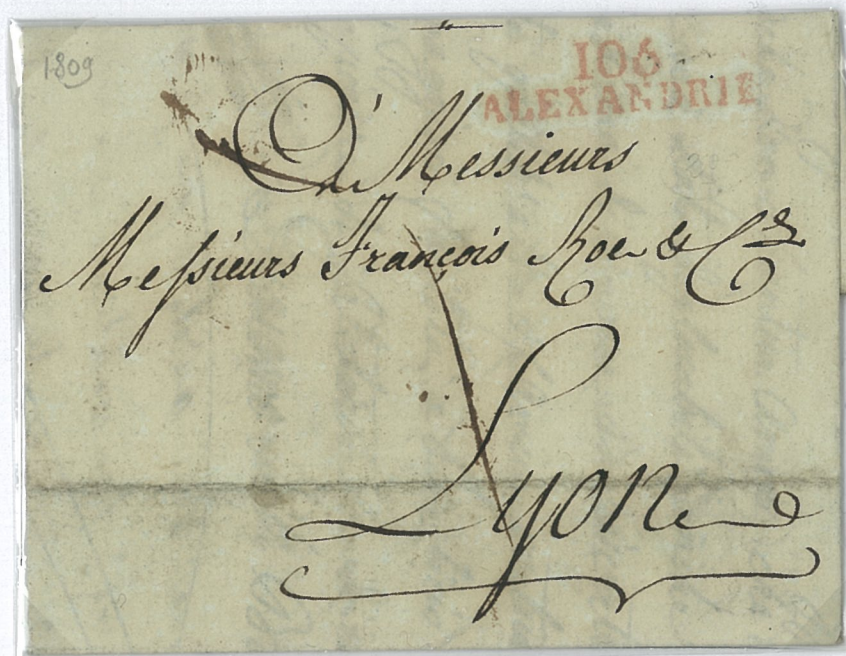 1809
106
ALEXANDRIE
A Messieurs
Messieurs François Roe & C.ie
Lyon